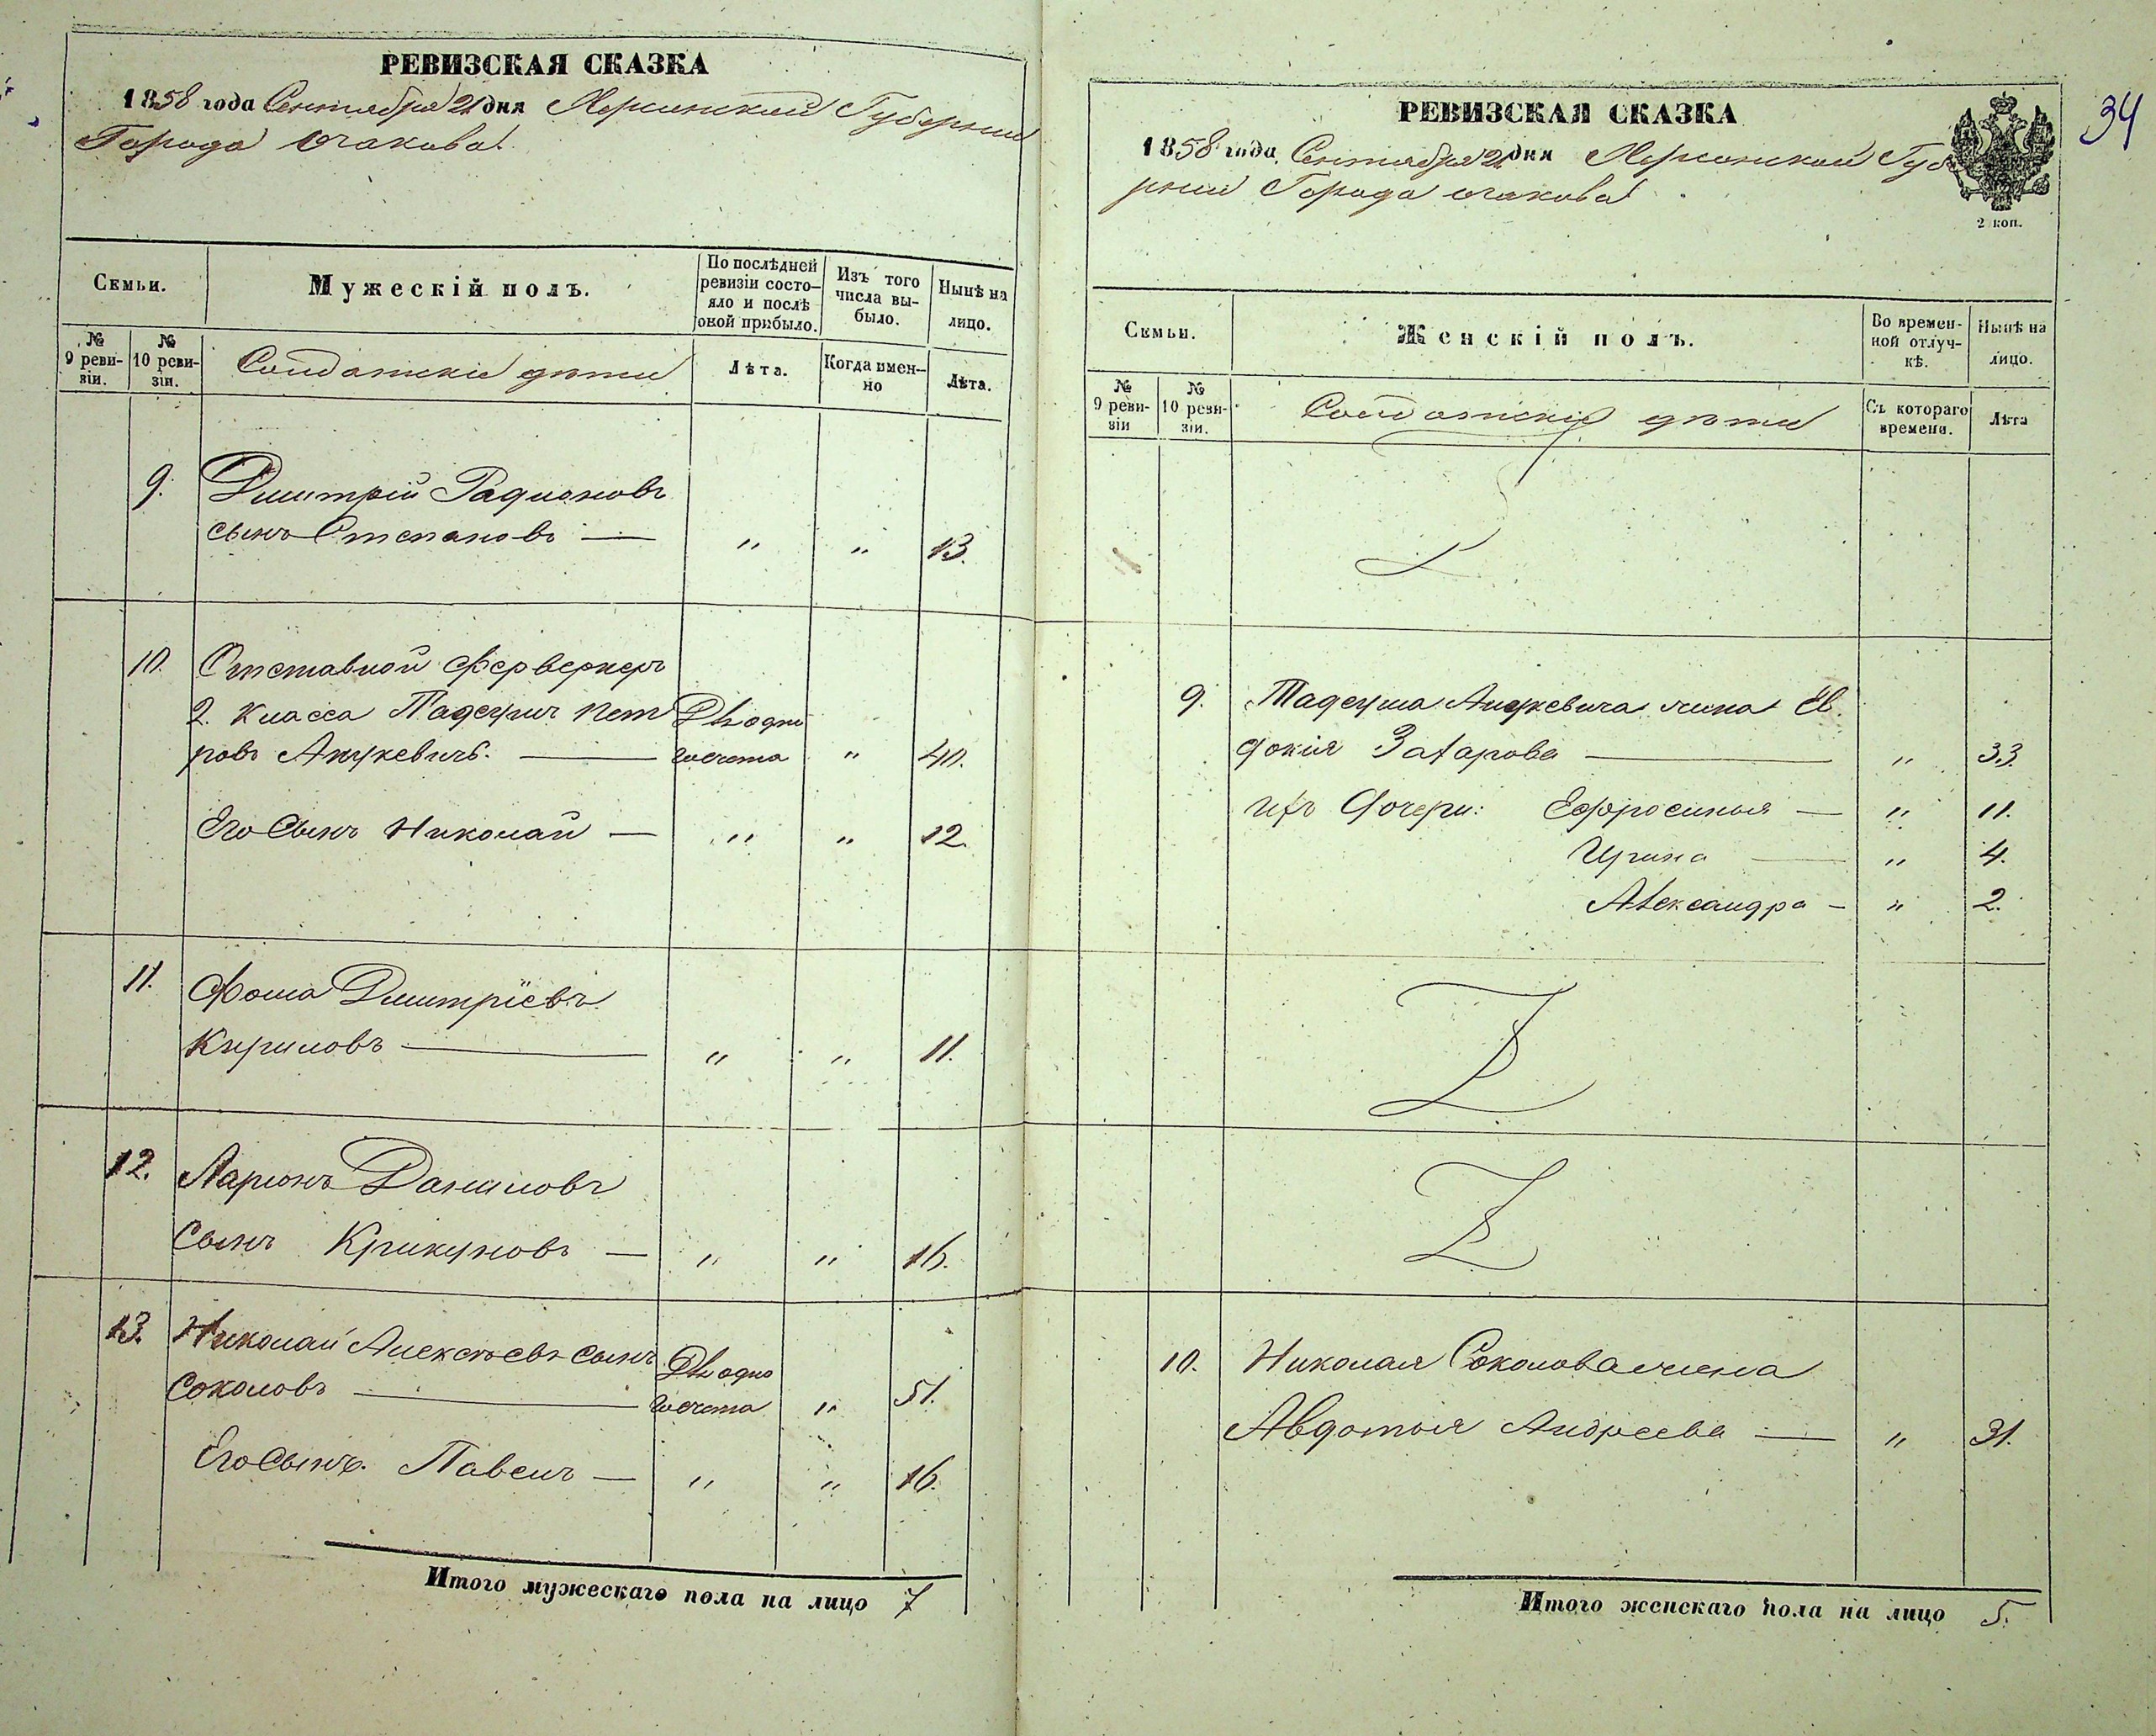 РЕВИЗСКАЯ СКАЗКА
1858 года Сентября 21 дня Херсонской Губернии
Города Очакова
Семьи.
Мужескій полъ.
По послѣдней ревизіи состояло и послѣ оной прибыло.
Изъ того числа выбыло.
Нынѣ на лицо.
№ 9 ревизіи.
№ 10 ревизіи.
Солдатскія дѣти
Лѣта.
Когда именно
Лѣта.
9. Дмитрій Радионовъ
сынъ Степановъ — " " 13.
10. Отставной Фервернеръ
2. класса Тадеушъ Пет
ровъ Анцкевичъ. — " 40.
Его Сынъ Николай — " " 12.
11. Фома Дмитріевъ
Кириловъ — " " 11.
12. Ларионъ Даниловъ
Сынъ Крикуновъ — " " 16.
13. Николай Алексѣевъ Сынъ
Соколовъ — " 51.
Его Сынъ. Павелъ — " " 16.
Итого мужескаго пола на лицо 7
34
РЕВИЗСКАЯ СКАЗКА
1858 года Сентября 21 дня Херсонской Губе
рнии Города Очакова
2 коп.
Семьи.
Женскій полъ.
Во временной отлучкѣ.
Нынѣ на лицо.
№ 9 ревизіи
№ 10 ревизіи.
Солдатскія дѣти
Съ котораго времени.
Лѣта
9. Тадеуша Анцкевича жена Ев
докія Захарова — " 33.
ихъ дочери: Ефросинья — " 11.
Ирина — " 4.
Александра — " 2.
10. Николая Соколова жена
Авдотья Андреева — " 31.
Итого женскаго пола на лицо 5.